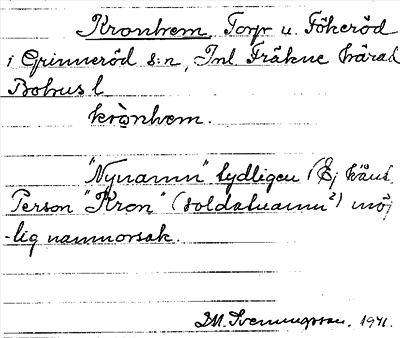 Kronhem Torp u. Fökeröd
i Grinneröd s:n, Inl Fräkne härad
Bohus l
kròn̥hem.
"Nynamn" tydligen (Ej känt.
Person "Kron" (soldatnamn?) möj
-lig namnorsak.
DM. Svenungsson. 1971.